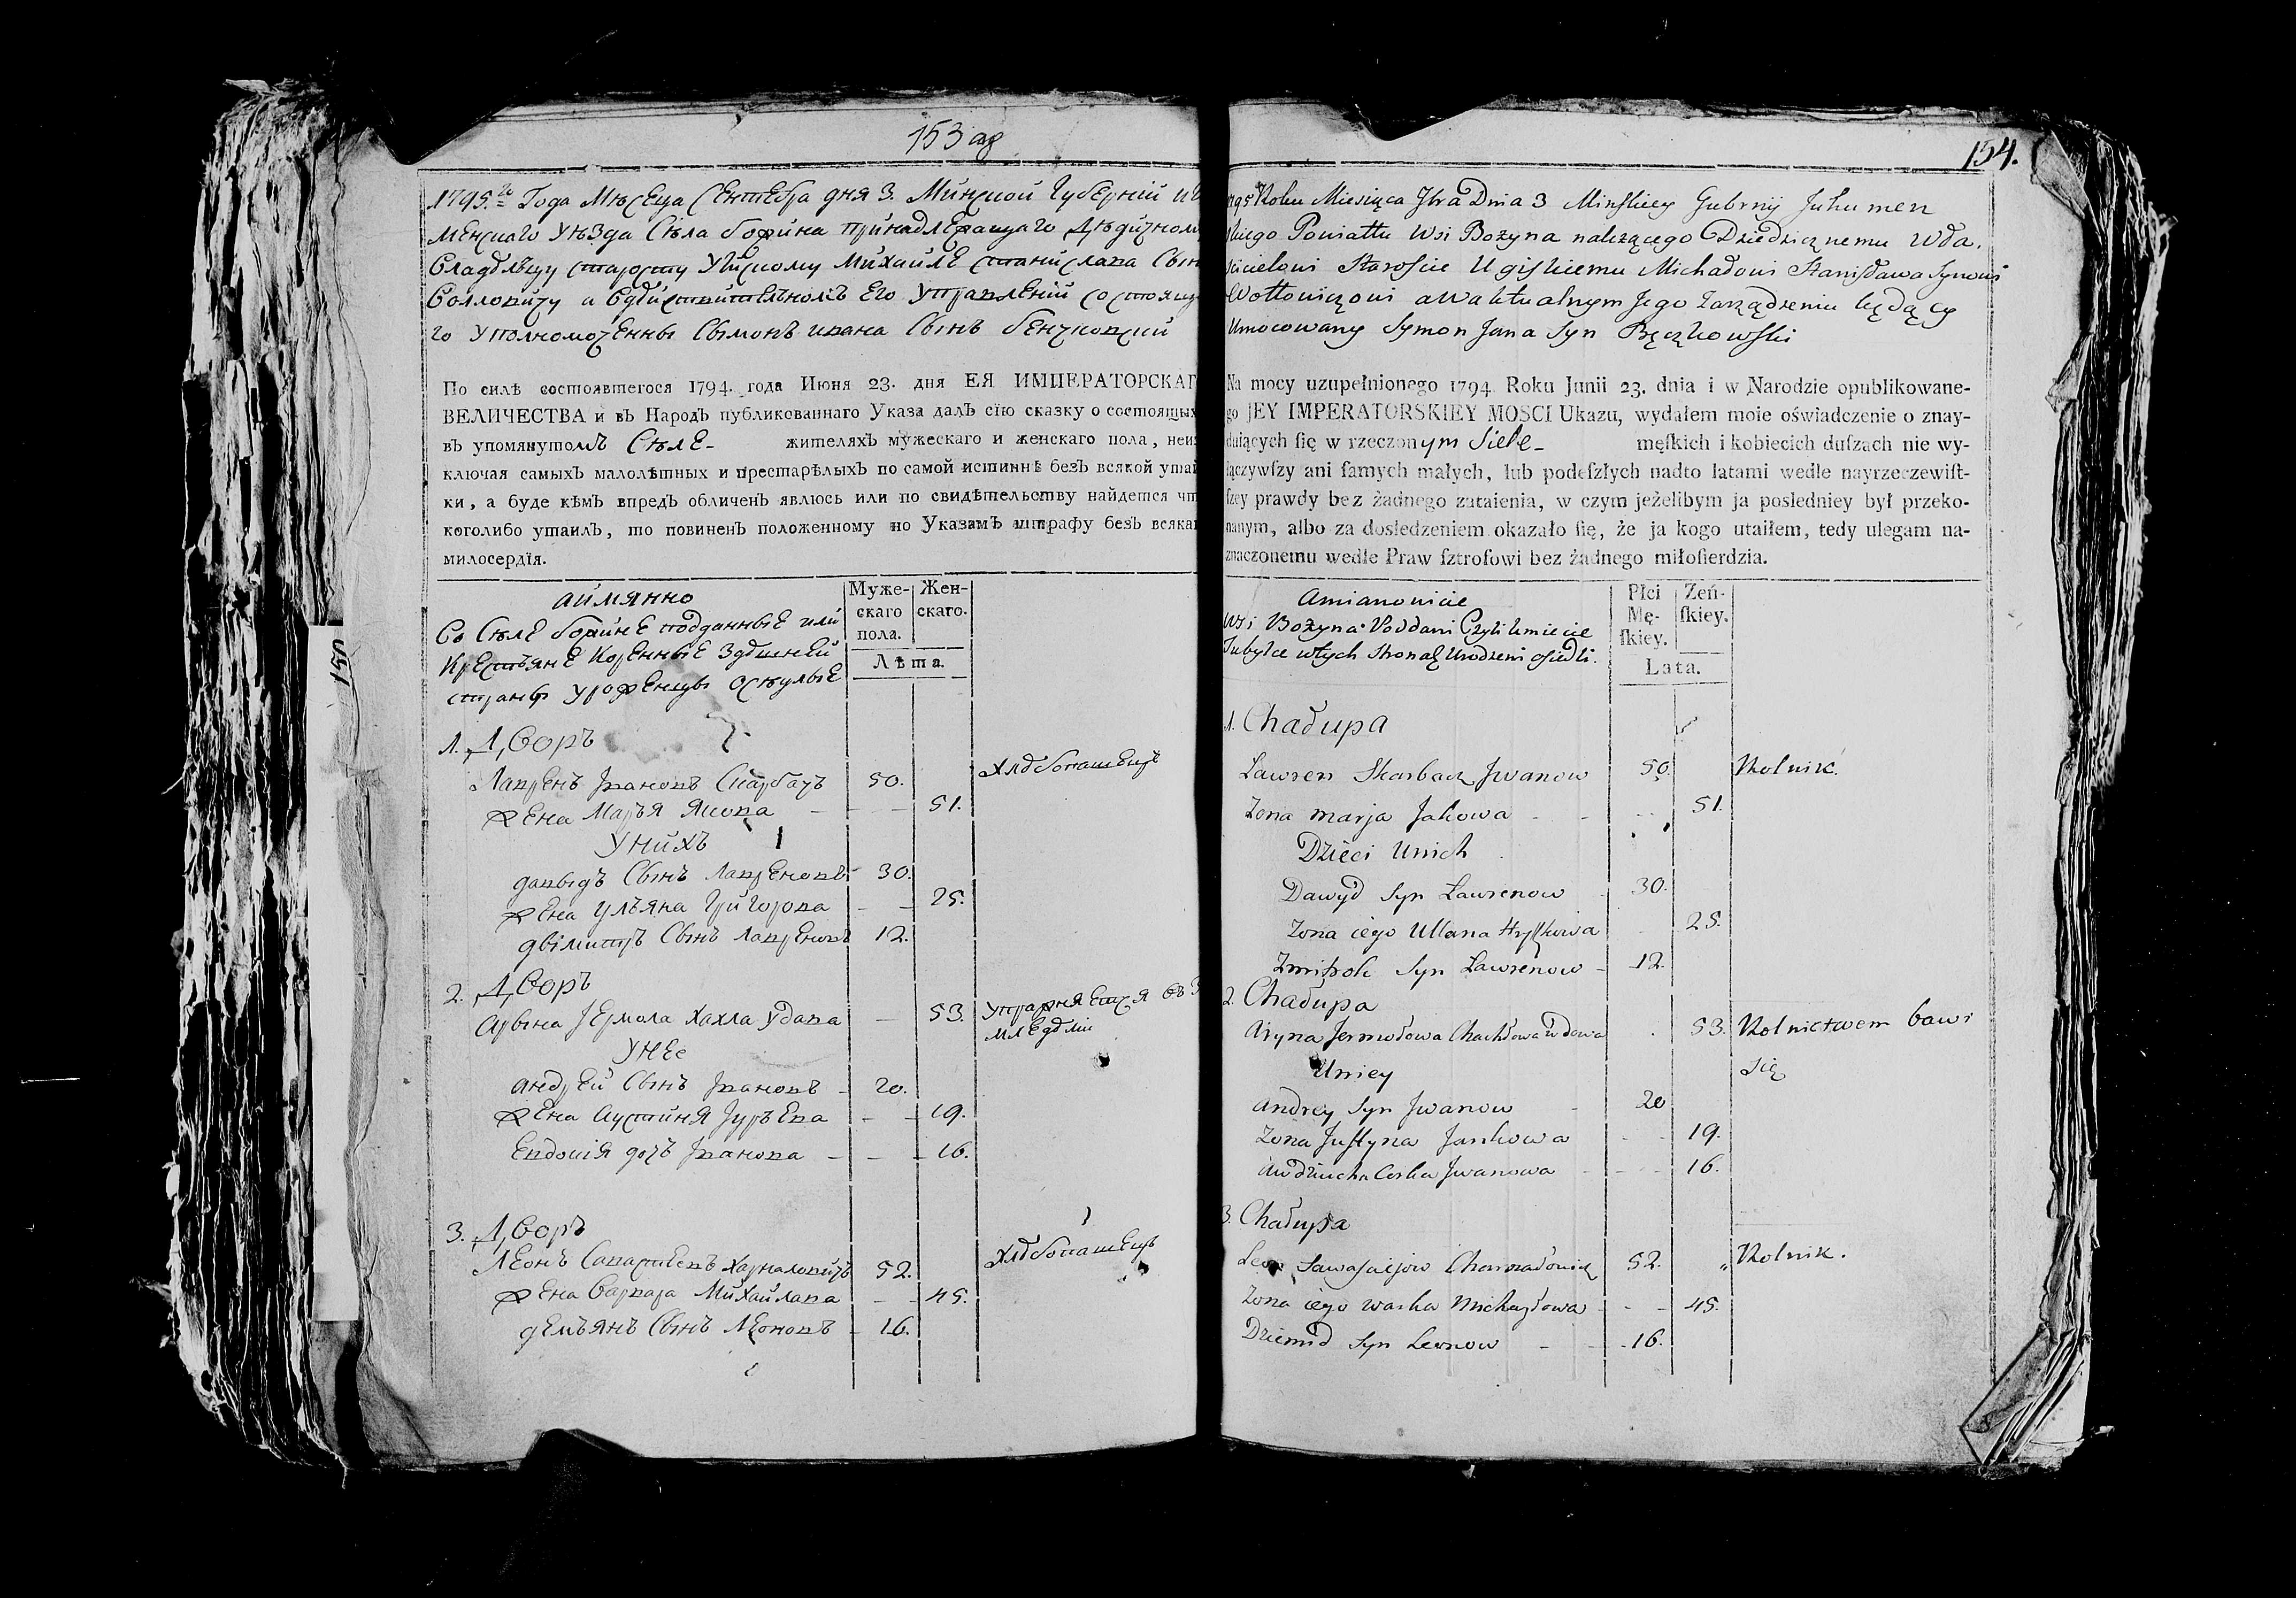 153 об
1795.го Года Мѣсеца Сентебра дня 3. Минской Губерній И
менскаго Уѣзда Сѣла божина принадлежащаго Дѣдизному
Міхайле Станіслава Сын
Волловичу а его Управленій состояще
го Уполномоченны Сымонъ ивана Сынъ бенчковскій
По силѣ состоявшегося 1794. года Июня 23. дня ЕЯ ИМПЕРАТОРСКАГ
ВЕЛИЧЕСТВА и въ Народъ публикованнаго Указа далъ сїю сказку о состоящых
въ упомянутомъ Сѣле- жителяхъ мужескаго и женскаго пола, неиз
ключая самыхъ малолѣтныхъ и престарѣлыхъ по самой истиннѣ безъ всякой утай
ки, а буде кѣмъ впредь обличенъ явлюсь или по свидѣтельству найдется чт
коголибо утаилъ, то повиненъ положенному по Указамъ штрафу безъ всяка
милосердїя.
аймянно
Во Сѣле божине подданные или
Крестъяне Коренные здешней
страны уроженцы осѣулые
Муже-
скаго
пола.
Жен-
скаго.
Лѣта.
1. Дворъ
Лавренъ Ивановъ Скарбачъ 50. хлебопашецъ
жена Маръя Якова - - 51.
Унихъ
давыдъ Сынъ Лавреновъ 30.
жена Улъяна Григорова - - 25.
двімитръ Сынъ Лавреновъ 12.
2. Дворъ
Арына Іермола Хахла Удава - 53. Упражняется въ З
мледеліи
Унее
андрей Сынъ Івановъ - 20.
жена Аустиня Юръева - - 19.
Евдокія дочъ Іванова - - - 16.
3. Дворъ
Леонъ Савастеевъ Хармаловичъ 52. хлебопашецъ
жена Варвара Михайлава - - 45.
демъянъ Сынъ Леоновъ - 16.
154.
1795 Roku Miesiąca 7bra Dnia 3 Minskiey Gubrnij Juhumen
skiego Powiattu Wsi Bożyna nalezącego Dziedzicznemu Wła.
scicielowi Staroscie Ugiskiemu Michałowi Stanisława Synowi
Wołłowiczowi a w aktualnym Jego Zarządzeniu będący
Umocowany Symon Jana Syn Bęczkowski
Na mocy uzupełnionego 1794 Roku Junii 23. dnia i w Narodzie opublikowane-
go JEY IMPERATORSKIEY MOSCI Ukazu, wydałem moie oświadczenie o znay-
duiących ſię w rzeczonym Siele- męſkich i kobiecich duſzach nie wy-
łączywſzy ani ſamych małych, lub podeſzłych nadto latami wedle nayrzeczewiſt-
ſzey prawdy bez żadnego zataienia, w czym jeżelibym ja posledniey był przeko-
nanym, albo za dosledzeniem okazało ſię, że ja kogo utaiłem, tedy ulegam na-
znaczonemu wedle Praw ſztrofowi bez żadnego miłoſierdzia.
Amianowicie
Wsi Bożyna Poddani Czyli Kmiecie
Tubylce w tych Stronach Urodzeni osiedli.
Płci
Mę-
ſkiey.
Żeń-
ſkiey.
Lata.
1. Chałupa
Lawren Skarbacz Jwanow 50. Rolnik.
Zona marja Jakowa - - 51.
Dzieci Unich
Dawyd Syn Lawrenow 30.
Zona iego Ullana Hryszkowa 25.
Zmitrok Syn Lawrenow - 12.
2. Chałupa
Aryna Jermołowa Chachłowa wdowa 53. Rolnictwem bawi
Się
Uniey
Andrey Syn Jwanow - 20
Zona Justyna Jurkowa - - 19.
Audziucha Corka Jwanowa - - - 16.
3. Chałupa
Leon Sawasciejow Charmałowicz 52. Rolnik.
Zona iego warka Michayłowa - - 45.
Dziemid Syn Leonow - - 16.
150